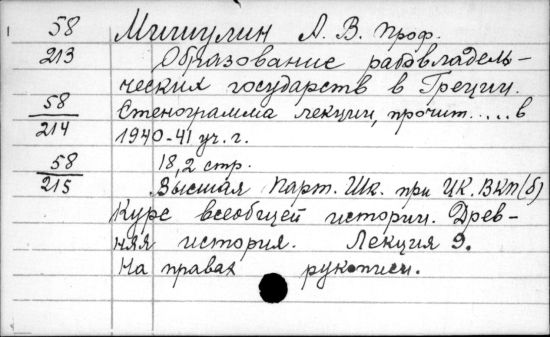 58 Мишулин А. В. проф.
213 Образование рабовладель-
ческих государств в Греции.
58 Стенограмма лекции, прочит.....в
214 1940-41 уч. г.
58 18,2 стр.
215 Высшая парт. Шк. при ЦК. ВКП(б)
Курс всеобщей истории. Древ-
няя история. Лекция 9.
На правах рукописи.